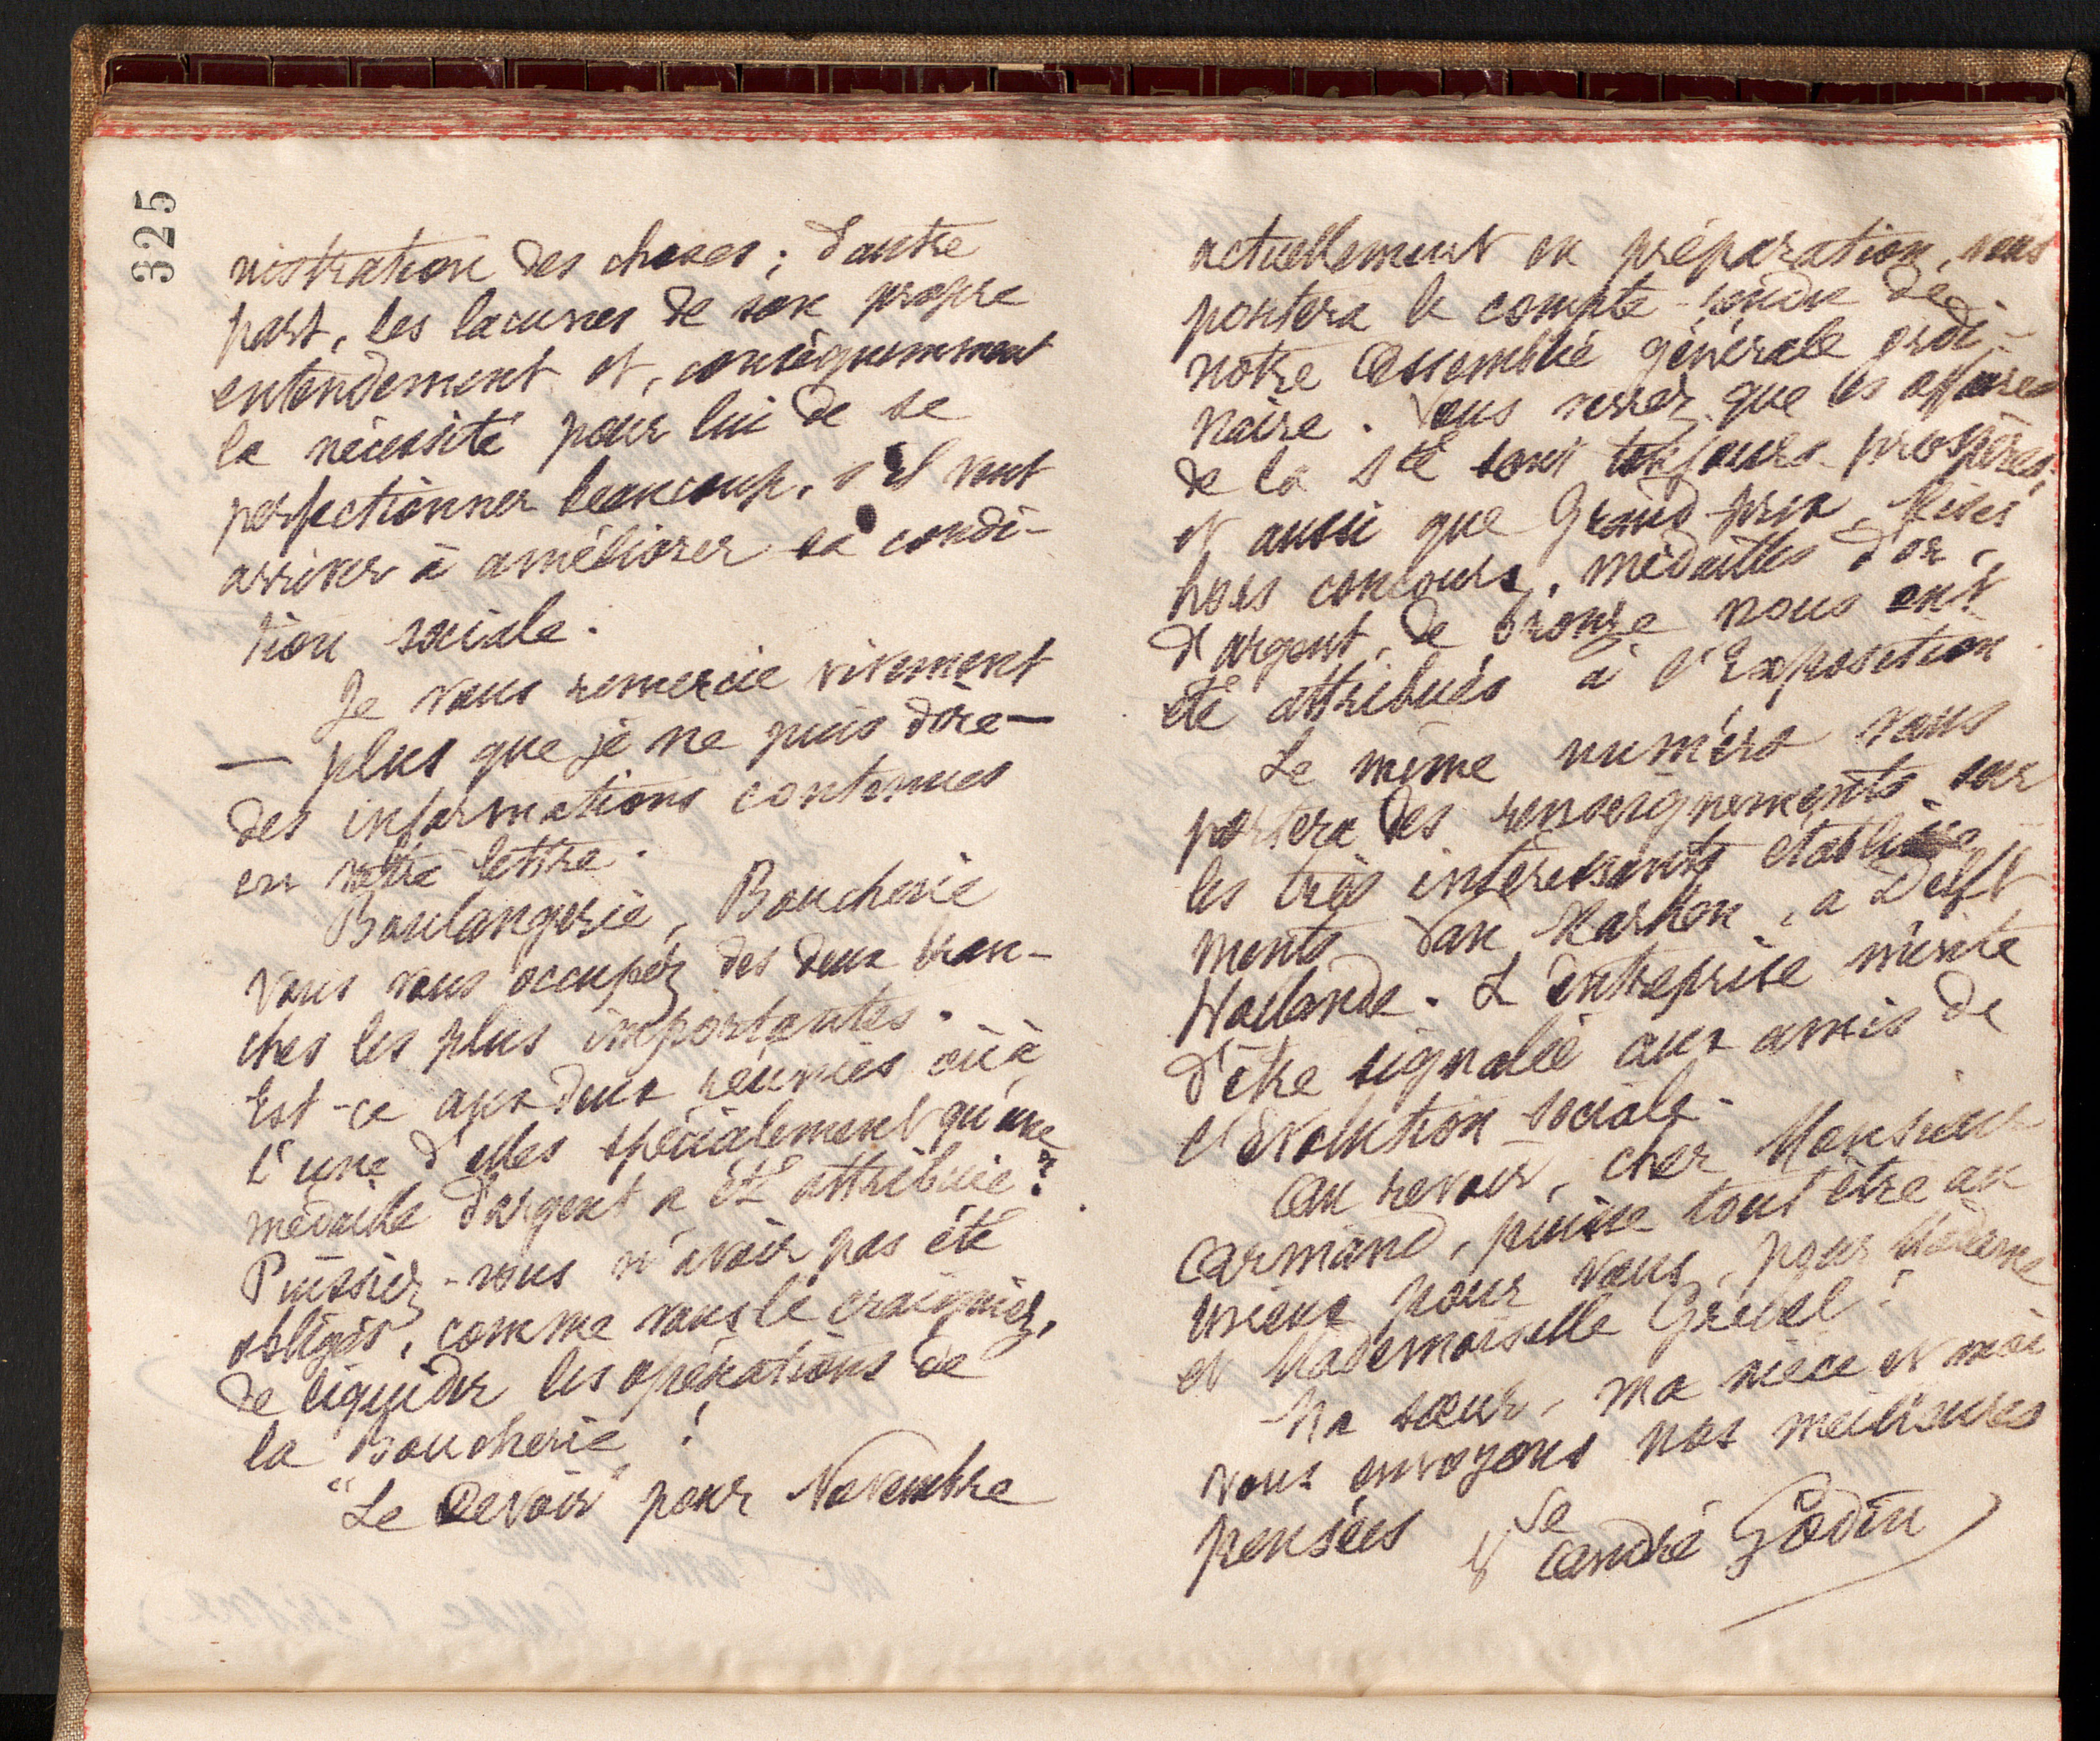 325
nistration des choses ; d'autre
part, les lacunes de son propre
entendement et, conséquemment
la nécessité pour lui de se
perfectionner beaucoup, s'il veut
arriver à améliorer sa condi-
tion sociale.
Je vous remercie vivement
— plus que je ne puis dire —
des informations contenues
en votre lettre.
Boulangerie, Boucherie
vous vous occupez des deux bran-
ches les plus importantes.
Est-ce aux deux réunies ou à
l'une d'elles spécialement qu'une
médaille d'argent a été attribuée ?
Puissiez-vous n'avoir pas été
obligés, comme vous le craigniez,
de liquider les opérations de
la Boucherie !
"Le Devoir" pour Novembre
actuellement en préparation, vous
portera le compte-rendu de
notre Assemblée générale ordi-
naire. Vous verrez que les affaires
de la Sté sont toujours prospères,
et aussi que Grand-prix, Mises
hors concours, médailles d'or,
d'argent, de bronze nous ont
été attribués à l'Exposition.
Le même numéro vous
portera des renseignements sur
les très intéressants établisse
ments Van Marken, à Delft
Hollande. L'entreprise mérite
d'être signalée aux amis de
l'évolution sociale.
Au revoir, cher Monsieur
Armand, puisse tout être au
mieux pour vous, pour Madame
et Mademoiselle Grebel !
Ma sœur, ma nièce et moi
vous envoyons nos meilleures
pensées
Ve
André Godin